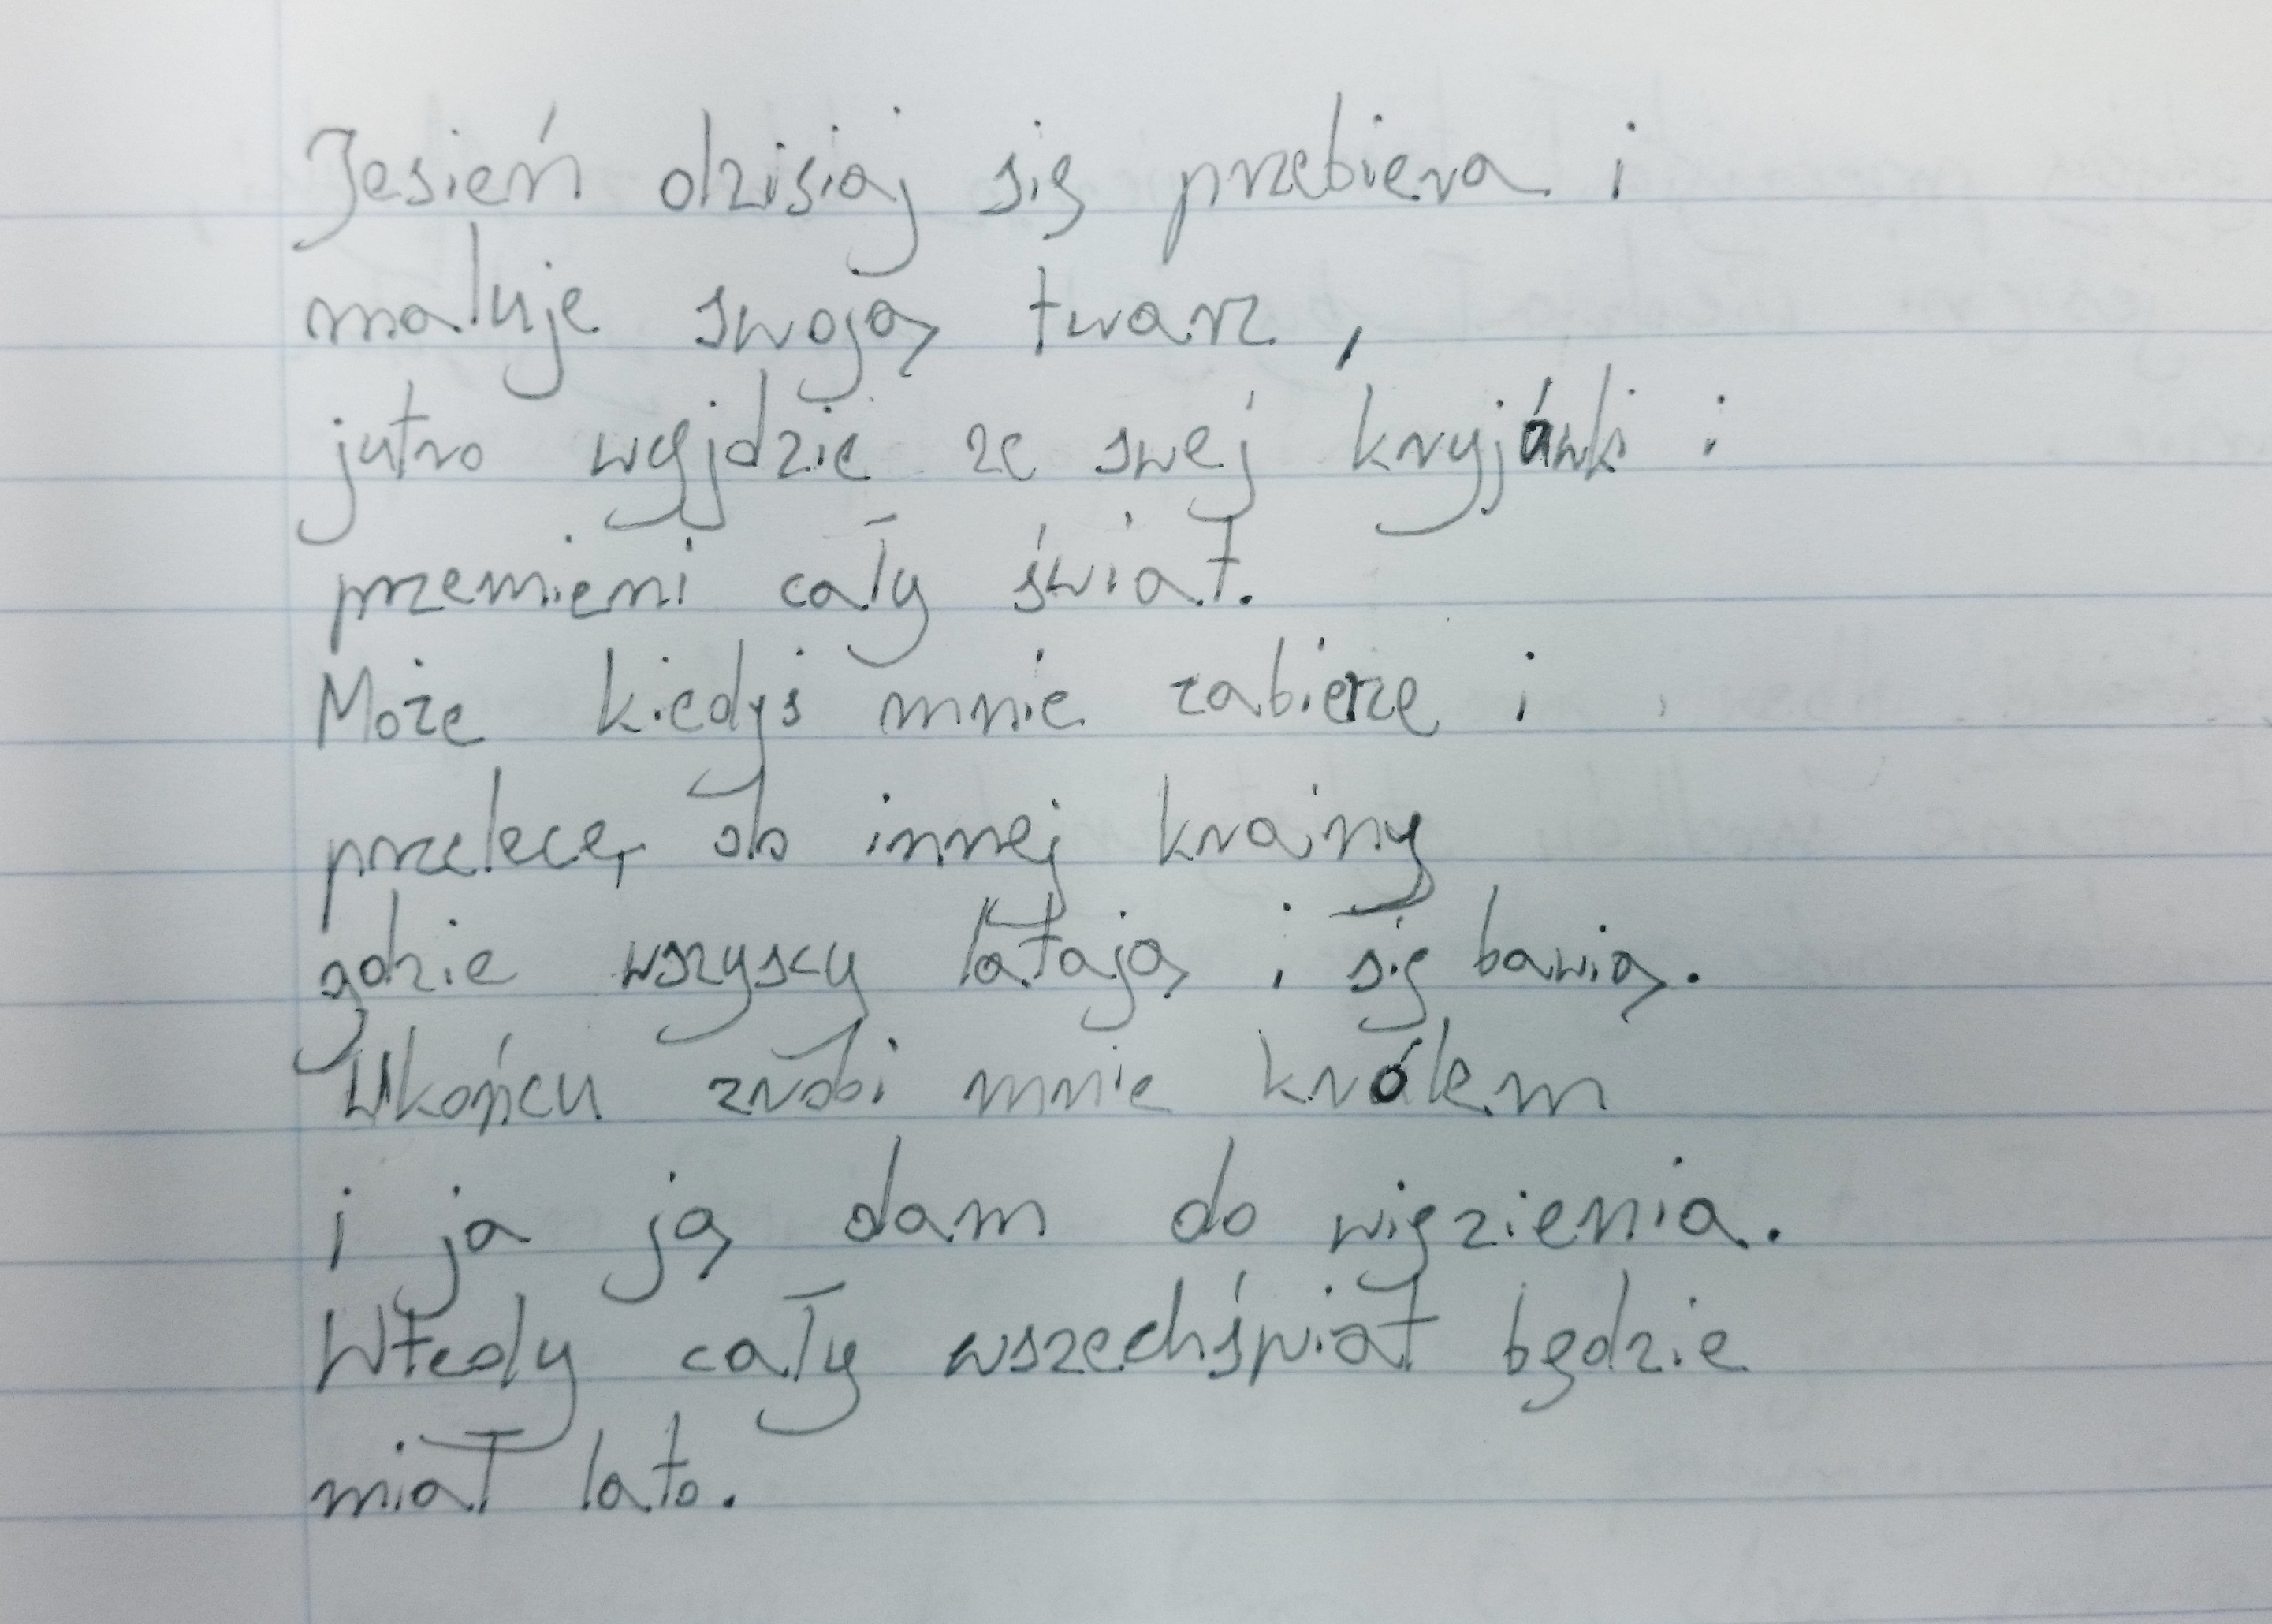 Jesień dzisiaj się przebiera i
maluje swoją twarz,
jutro wyjdzie ze swej kryjówki i
przemieni cały świat.
Może kiedyś mnie zabierze i
przelecę do innej krainy
gdzie wszyscy latają i się bawią.
Wkońcu zrobi mnie królem
i ja ją dam do więzienia.
Wtedy cały wszechświat będzie
miał lato.